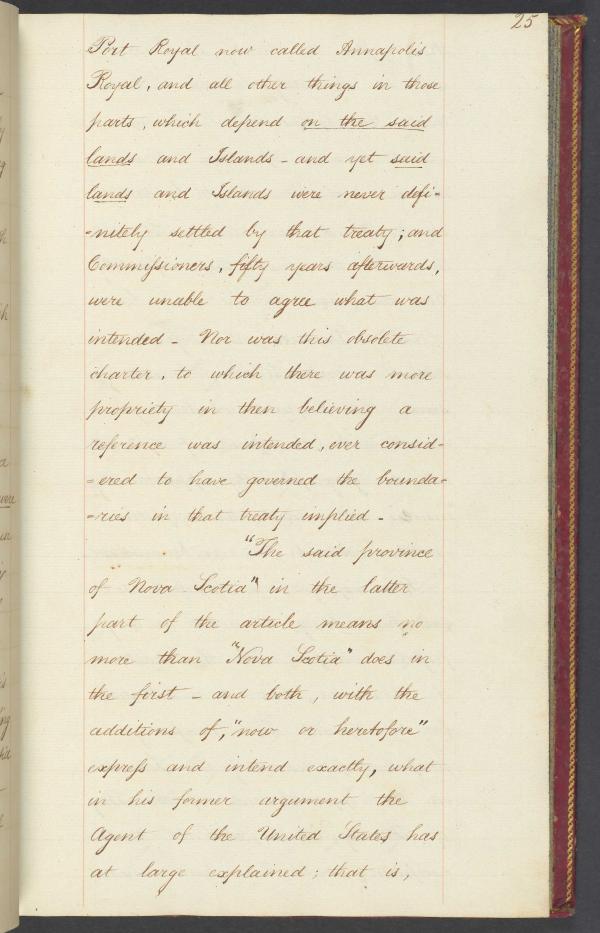 25
Port Royal now called Annapolis
Royal, and all other things in those
parts, which depend on the said
lands and Islands - and yet said
lands and Islands were never defi-
-nitely settled by that treaty; and
Commissioners, fifty years afterwards,
were unable to agree what was
intended - Nor was this obsolete
charter, to which there was more
propriety in then believing a
reference was intended, ever consid-
-ered to have governed the bounda-
-ries in that treaty implied -
"The said province
of Nova Scotia" in the latter
part of the article means no
more than "Nova Scotia" does in
the first - and both, with the
additions of, "now or heretofore"
express and intend exactly, what
in his former argument the
Agent of the United States has
at large explained; that is,